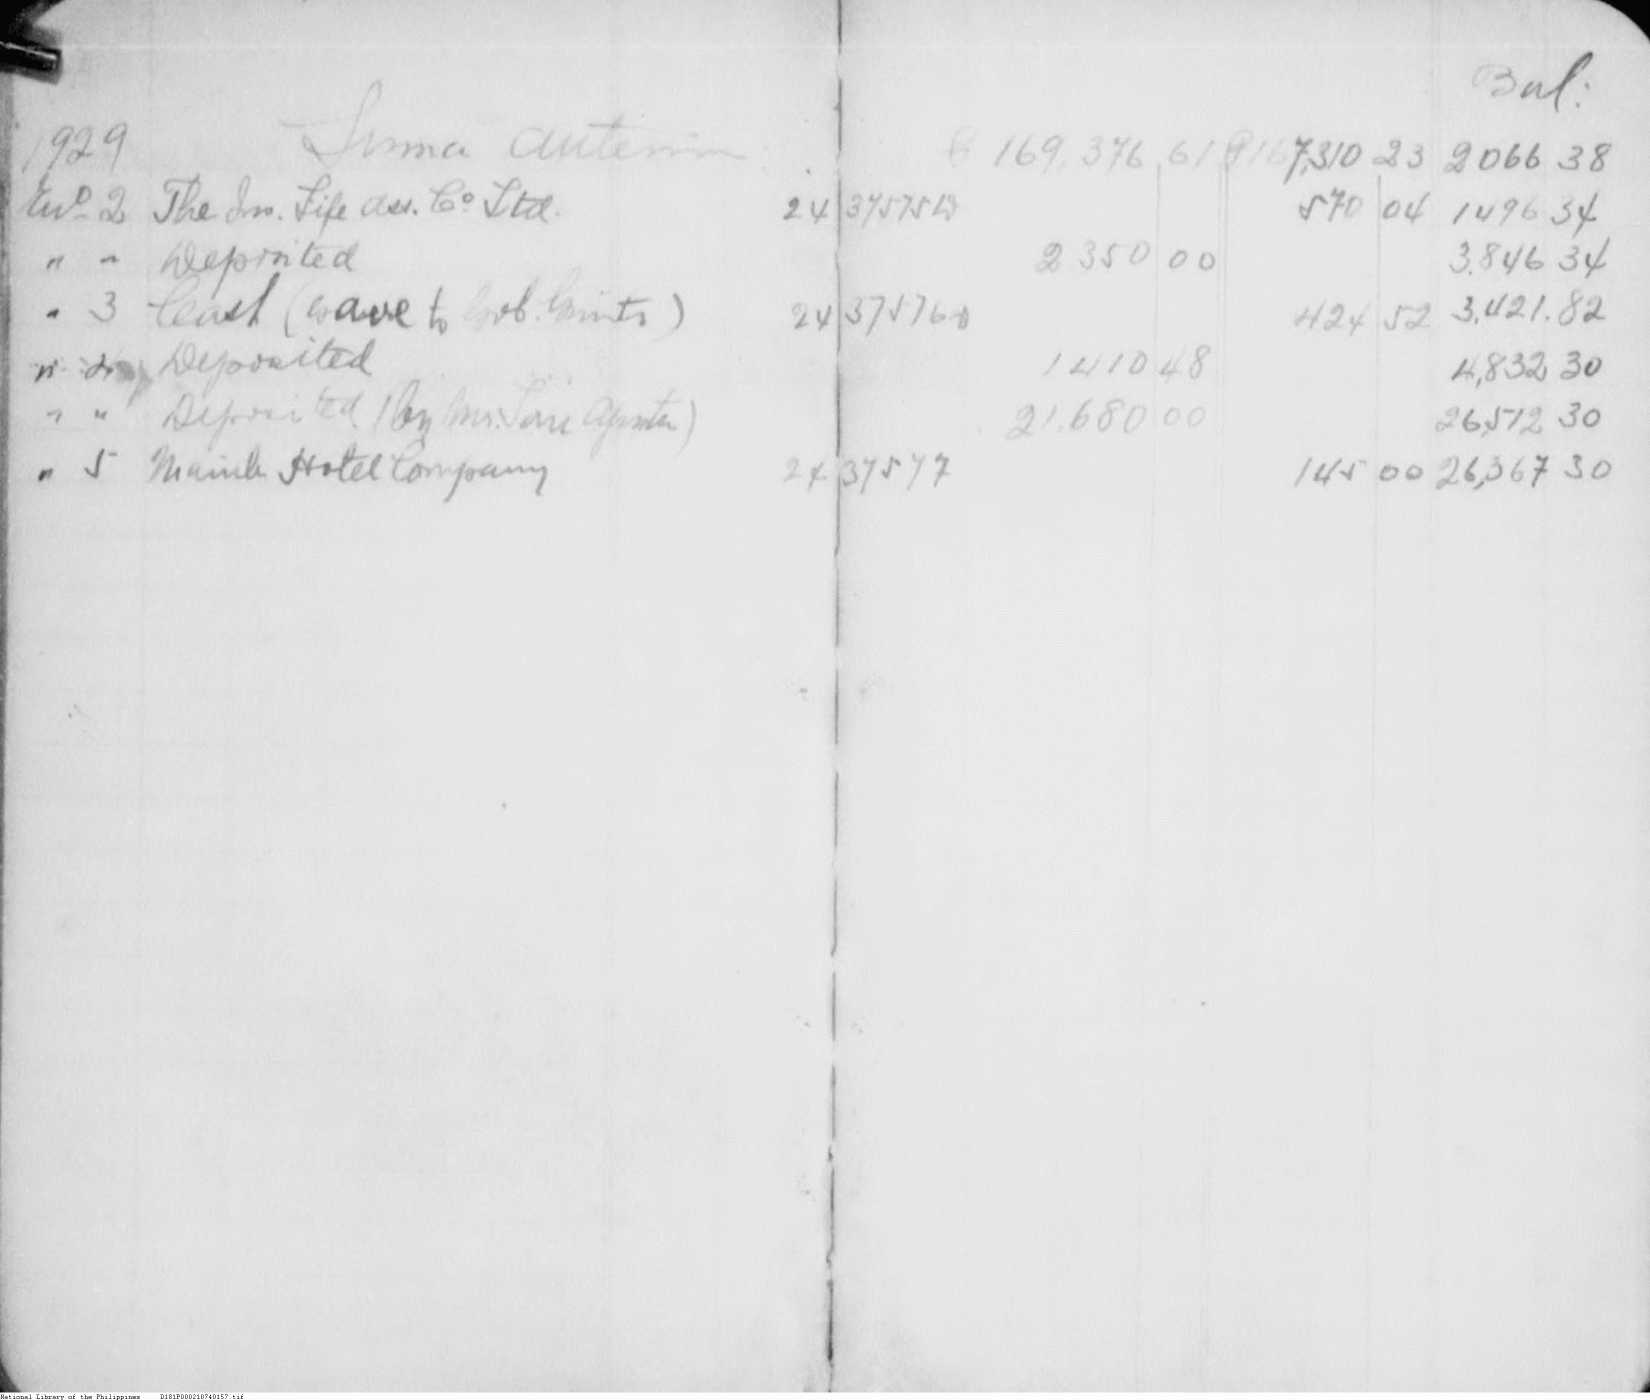 Bal:
1929 Suma anterior 169,376 61 ₱167,310 23 2066 38
En° 2 The Ins. Life Ass. C° Ltd. 24 375754 570 04 1496 34
" " Deposited 2350 00 3,846 34
" 3 Cash ( to ) 24 375760 424 52 3,421.82
" " Deposited 1410 48 4,832 30
" " Deposited (by Mr. ) 21.680 00 26,512 30
" 5 Manila Hotel Company 24 37577 145 00 26,367 30
National Library of the Philippines D181P000210740157.tif